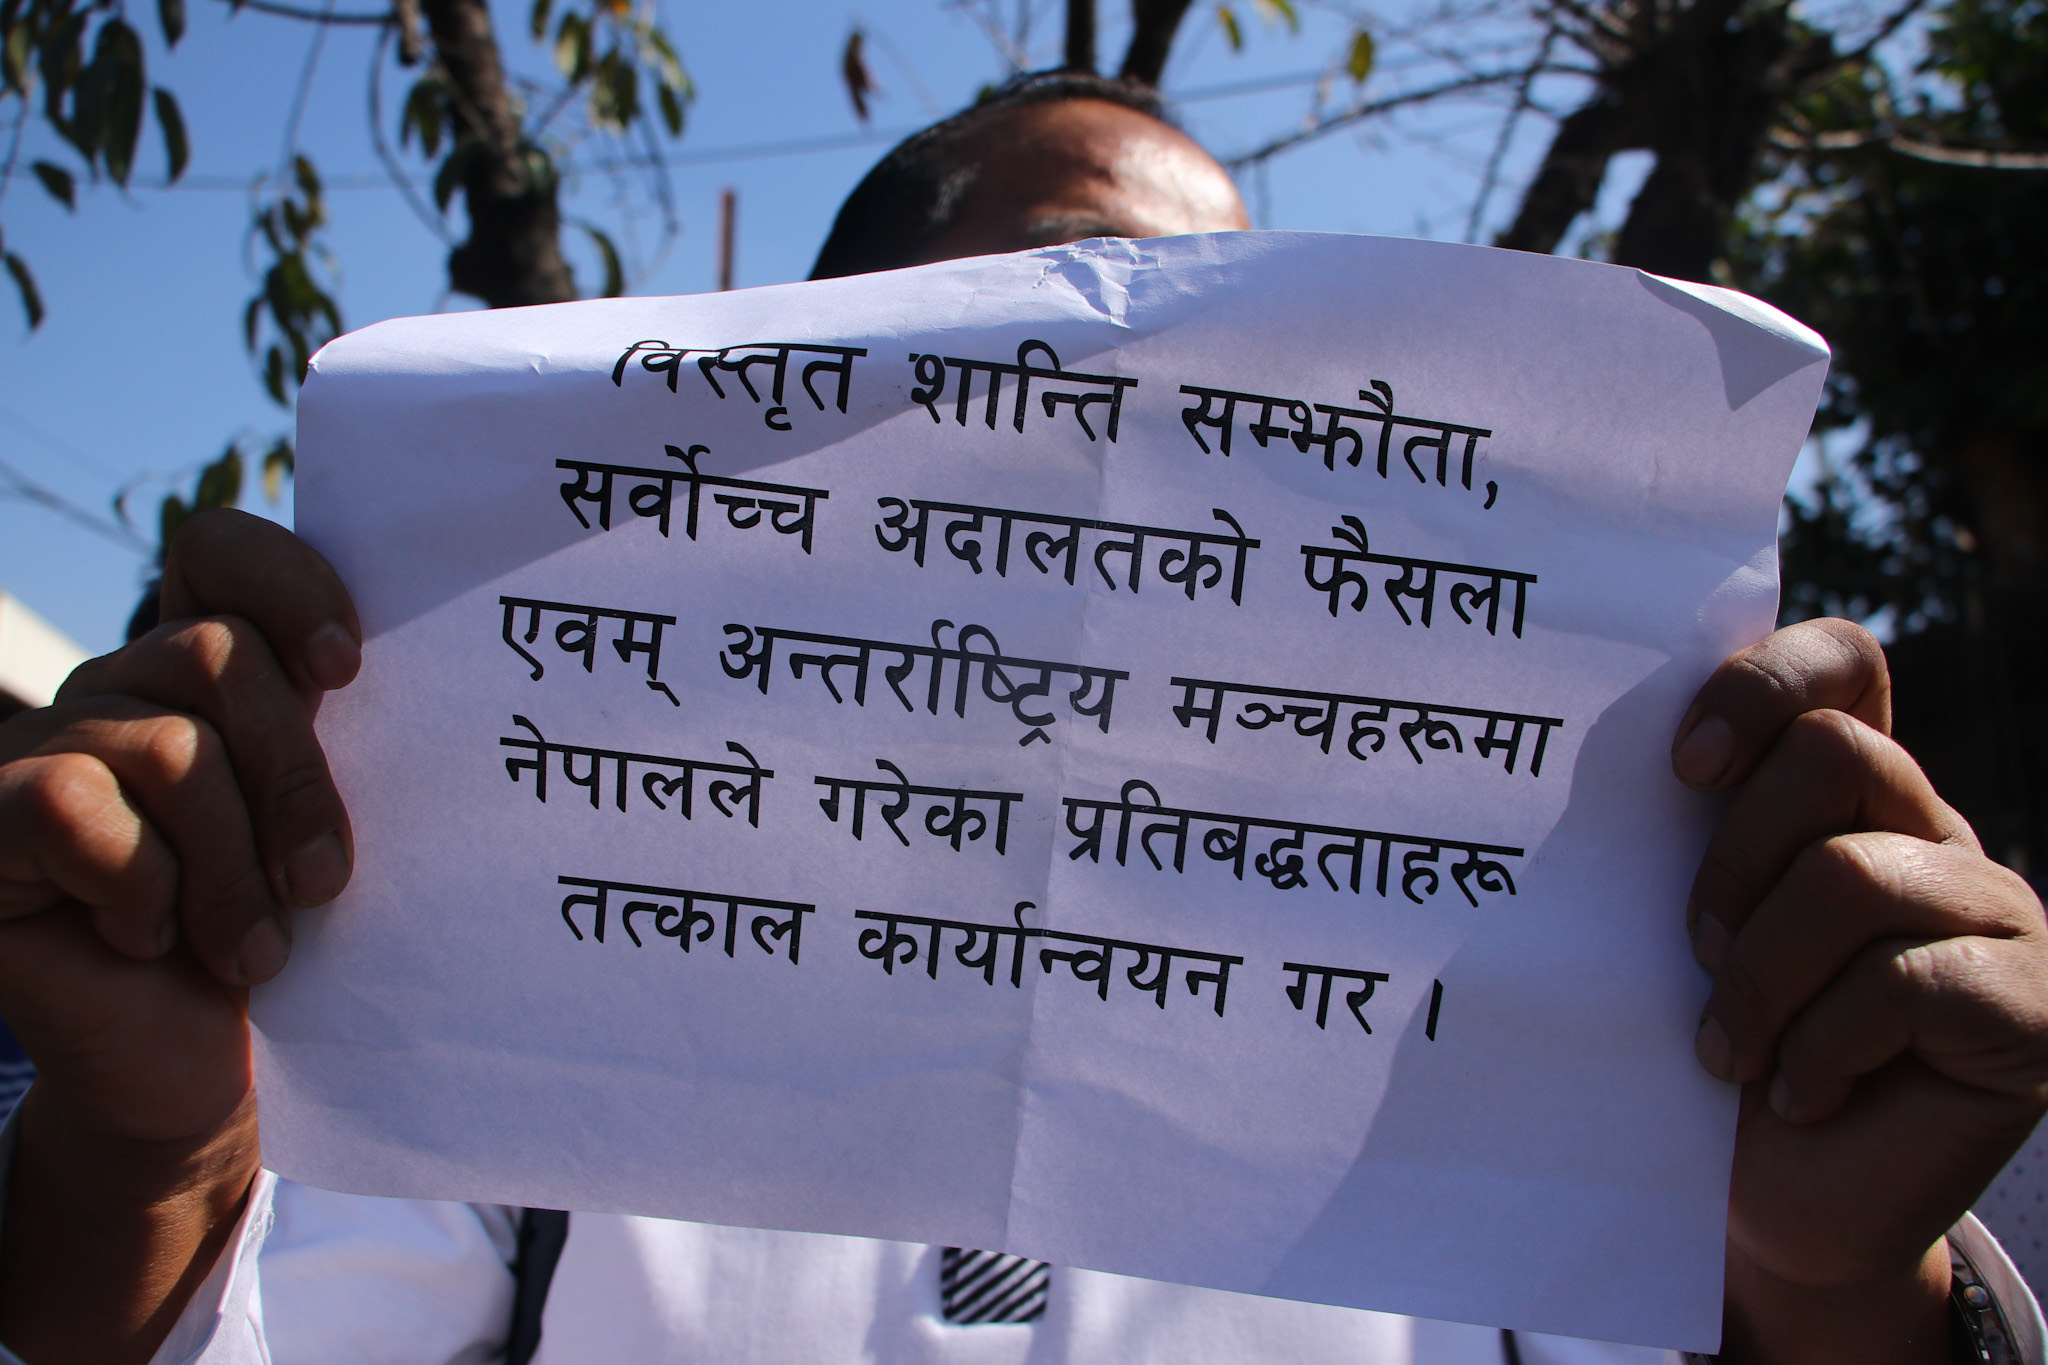 विस्तृत शान्ति सम्झौता,
सर्वोच्च अदालतको फैसला
एवम् अन्तर्राष्ट्रिय मञ्चहरूमा
नेपालले गरेका प्रतिबद्धताहरू
तत्काल कार्यान्वयन गर ।